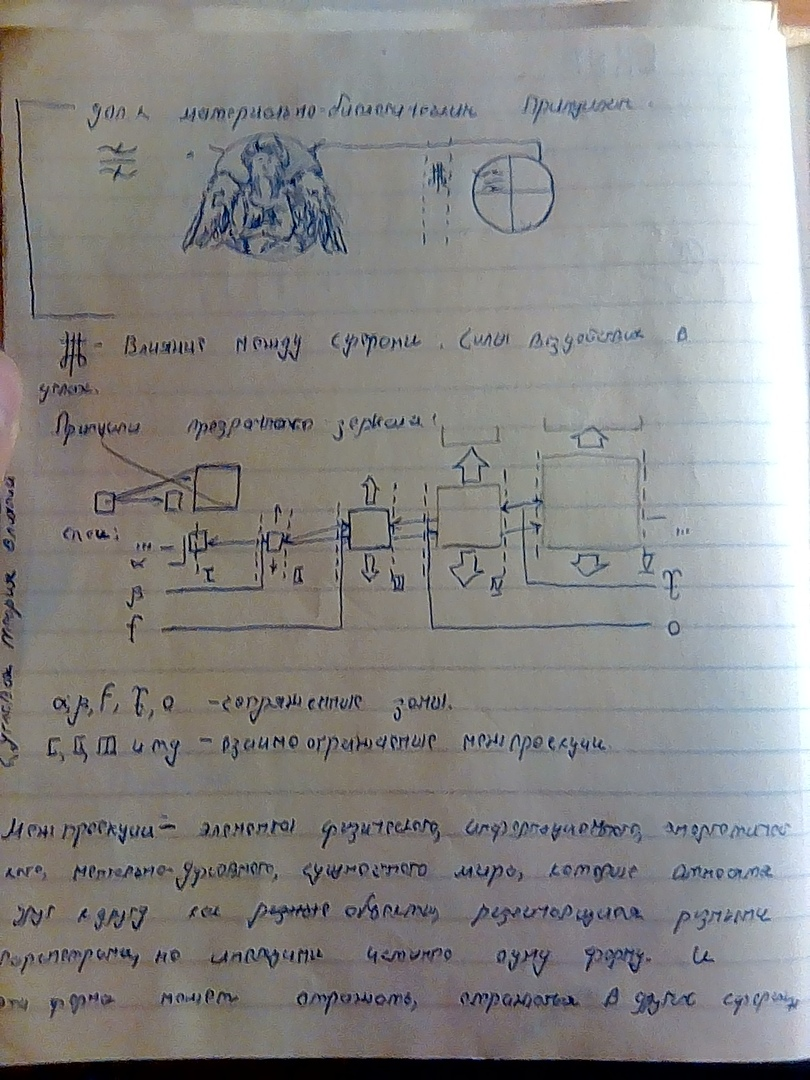 материально-биологическими
Влияние между сферами. Силы воздействия в
углах.
Принципы прозрачного зеркала:
...
...
α
β
f
I
II
III
IV
V
τ
o
α, β, f, τ, o - сопряженные зоны.
I, II, III и тд - взаимоотражаемые межпроекции.
Межпроекции - элементы физического, информационного, энергетичес
кого, ментально-духовного, сущностного мира, которые относятся
друг к другу как разные объекты, различающиеся разными
параметрами, но имеющими истинно одну форму. И
эта форма может отражать, отражаться в других сферах
угловая теория влияний